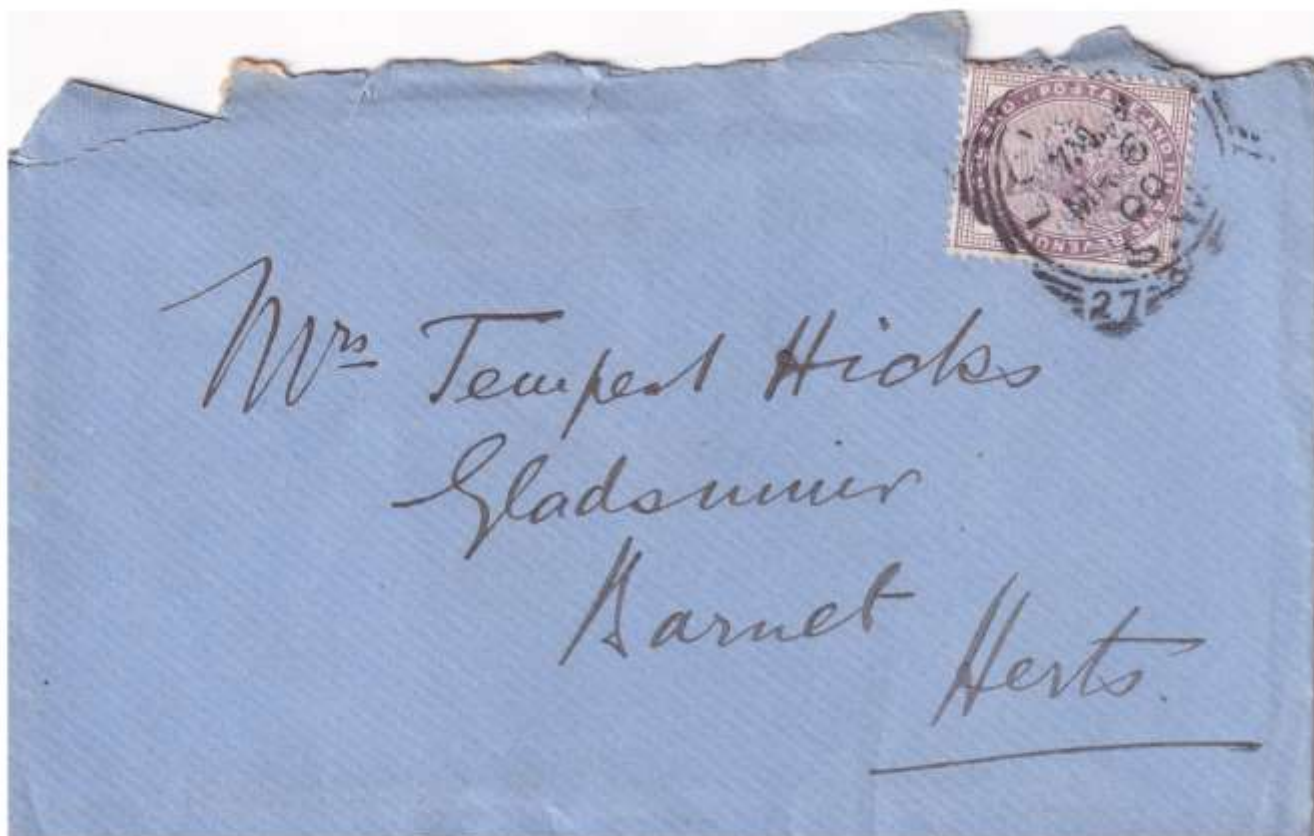 POSTAGE AND INLAND REVENUE
MR 6
00
S
27
Mrs Tempest Hicks
Gladsmuir
Barnet
Herts.